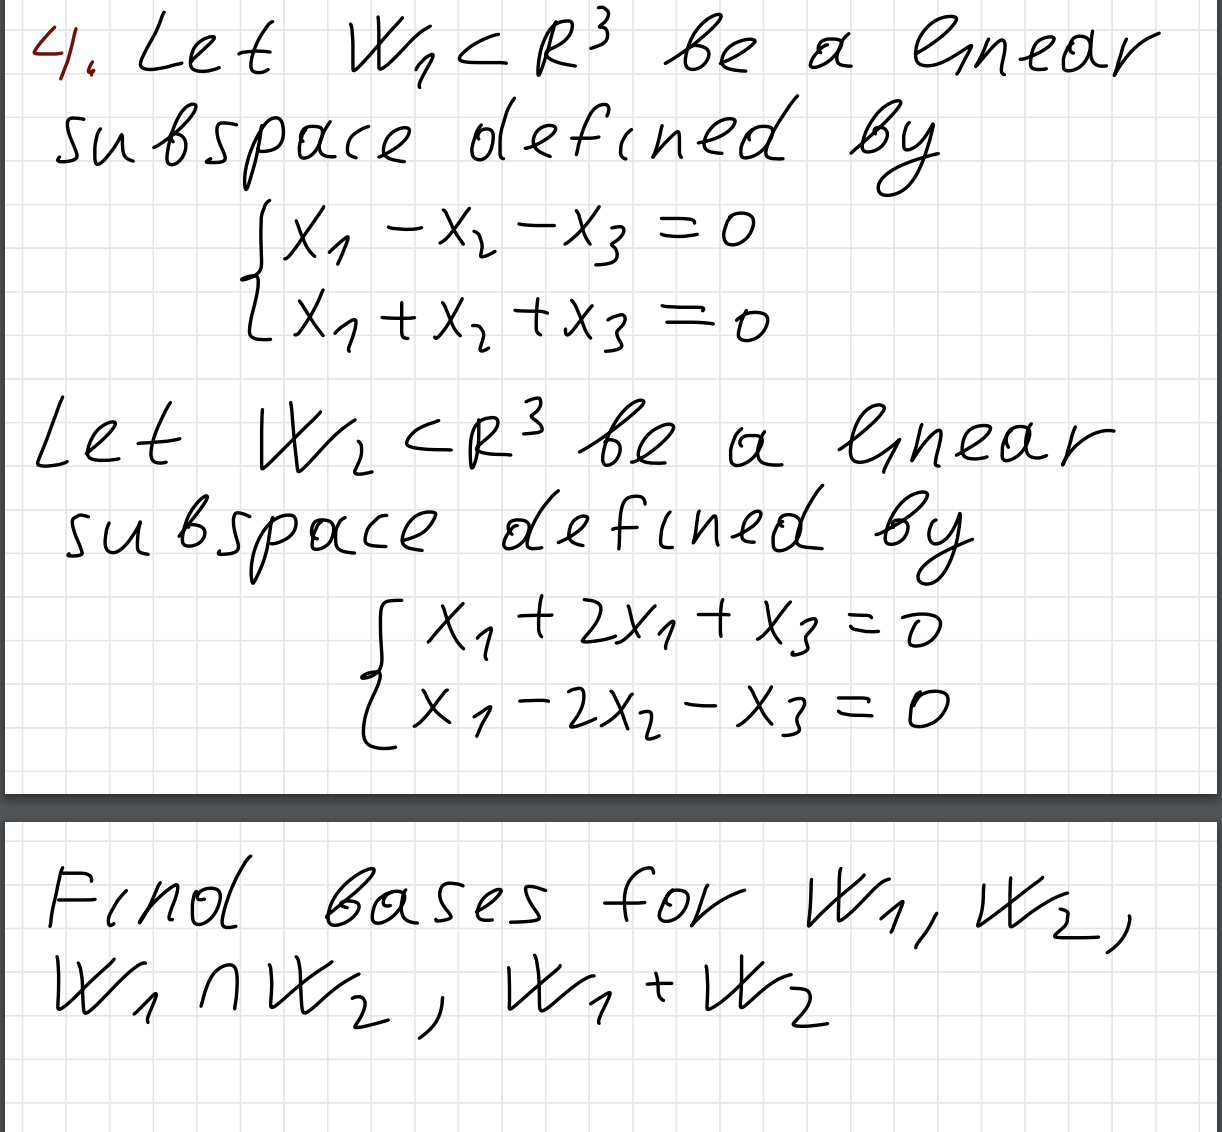 4. Let W₁ ⊂ R³ be a linear
subspace defined by
{ x₁ - x₂ - x₃ = 0
{ x₁ + x₂ + x₃ = 0
Let W₂ ⊂ R³ be a linear
subspace defined by
{ x₁ + 2x₁ + x₃ = 0
{ x₁ - 2x₂ - x₃ = 0
Find bases for W₁, W₂,
W₁ ∩ W₂, W₁ + W₂